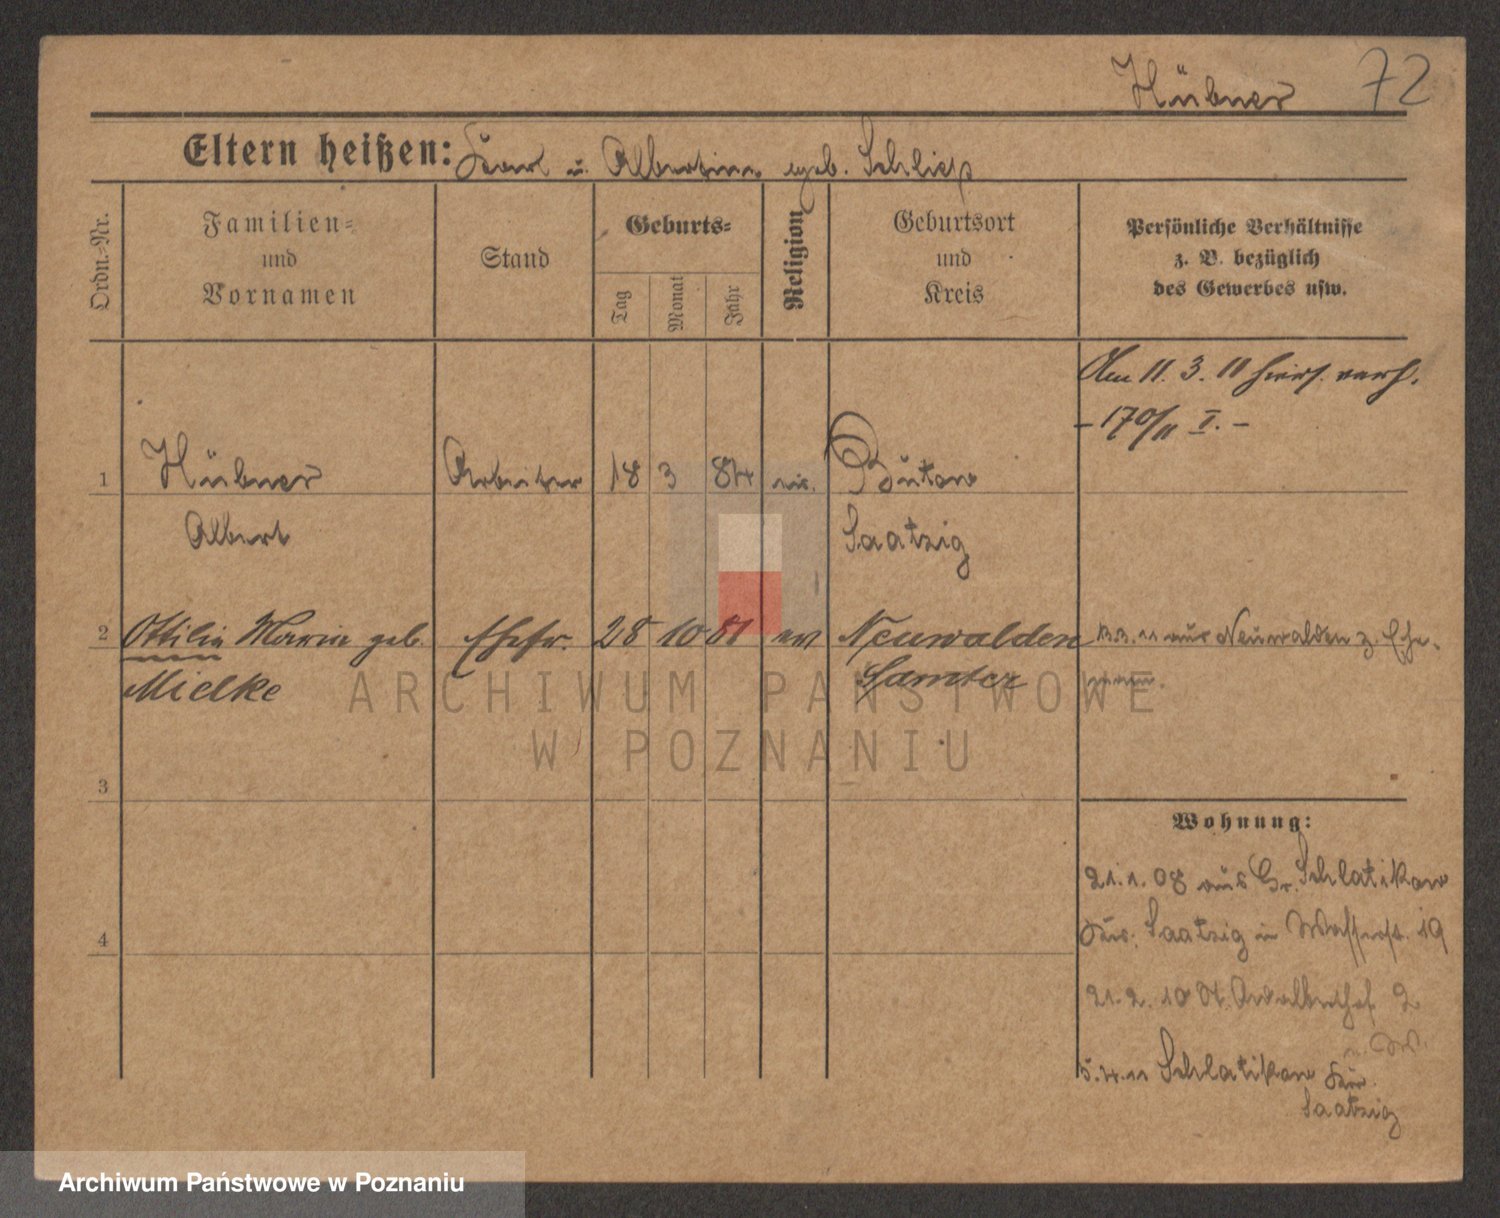 Hübner 72
Eltern heißen: Karl u. Albertine geb. Schliep
Ordn.-Nr.
Familien=
und
Vornamen
Stand
Geburts=
Tag
Monat
Jahr
Religion
Geburtsort
und
Kreis
Persönliche Verhältnisse
z. B. bezüglich
des Gewerbes usw.
Am 11. 3. 11 hiers. verh.
- 170/11 I. -
1 Hübner Arbeiter 18 3 84 ev. Bütow
Albert Saatzig
2 Ottilie Marie geb. Ehefr. 28 10 81 ev Neuwalden aus Neuwalden z. Ehe-
Mielke Samter mann.
3
Wohnung:
21.1.08 aus Gr. Schlatikow
Krs. Saatzig in Wasserstr. 19
4
21.2.10 St. Adalberthof 2
5.4.11 Schlatikow Krs.
Saatzig
ARCHIWUM PAŃSTWOWE
W POZNANIU
Archiwum Państwowe w Poznaniu